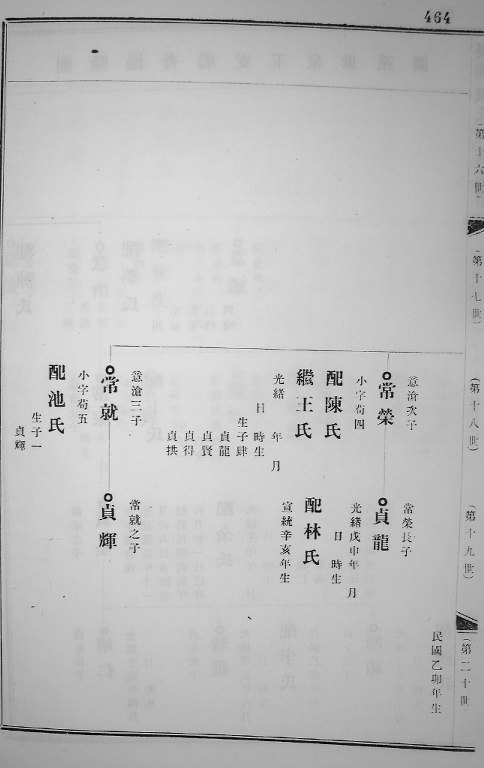 464
第十六世
(第十七世)
(第十八世)
(第十九世)
(第二十世)
民國乙卯年生
常榮長子
貞龍
光緒戊申年 月
日 時生
配林氏
宣統辛亥年生
意滄次子
常榮
小字荀四
配陳氏
繼王氏
光緒 年 月
日 時生
生子肆
貞龍
貞賢
貞得
貞拱
意滄三子
常就
小字荀五
配池氏
生子一
貞輝
常就之子
貞輝